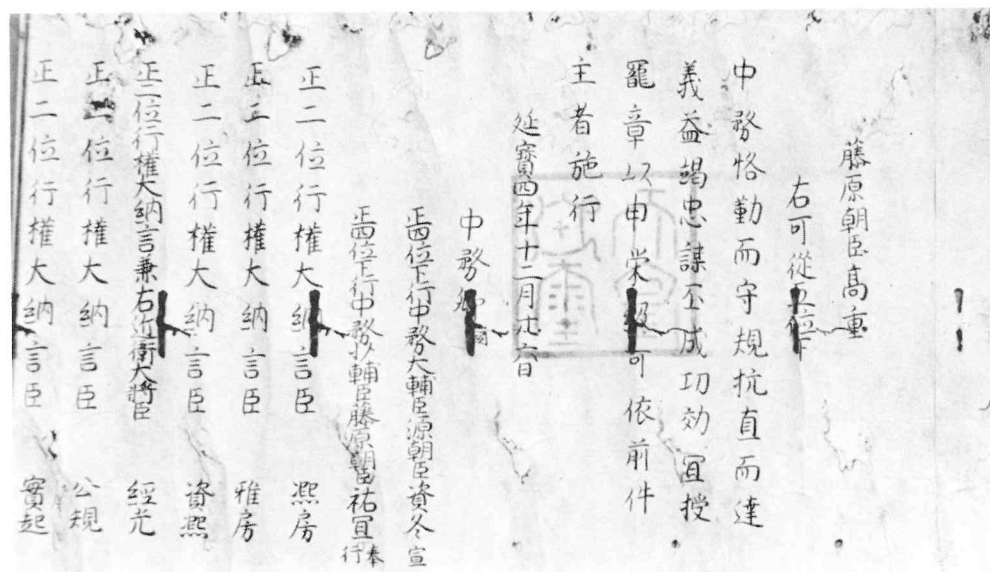 藤原朝臣高重
右可從五位下
中務恪勤而守規抗直而達
義益竭忠謀丕成功効冝授
寵章以申栄級可依前件
主者施行
延寳四年十二月廿六日
中務卿
正四位下行中務大輔臣源朝臣資冬宣
正四位下行中務少輔臣藤原朝臣祐冝奉行
正二位行權大納言臣 凞房
正二位行權大納言臣 雅房
正二位行權大納言臣 資凞
正二位行權大納言兼右近衛大將臣 經光
正二位行權大納言臣 公規
正二位行權大納言臣 實起